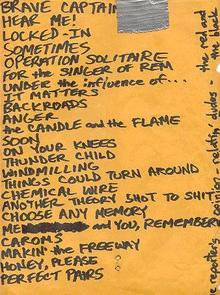 BRAVE CAPTAIN
HEAR ME!
LOCKED-IN
SOMETIMES
OPERATION SOLITAIRE
FOR the SINGER OF REM
UNDER the influence of...
IT MATTERS
BACKROADS
ANGER
the CANDLE and the FLAME
SOON
ON YOUR KNEES
THUNDER CHILD
WINDMILLING
THINGS COULD TURN AROUND
CHEMICAL WIRE
ANOTHER THEORY SHOT TO SHIT
CHOOSE ANY MEMORY
ME and YOU, REMEMBER
CAROMS
MAKIN' the FREEWAY
HONEY, PLEASE
PERFECT PAIRS
the red and
dudes